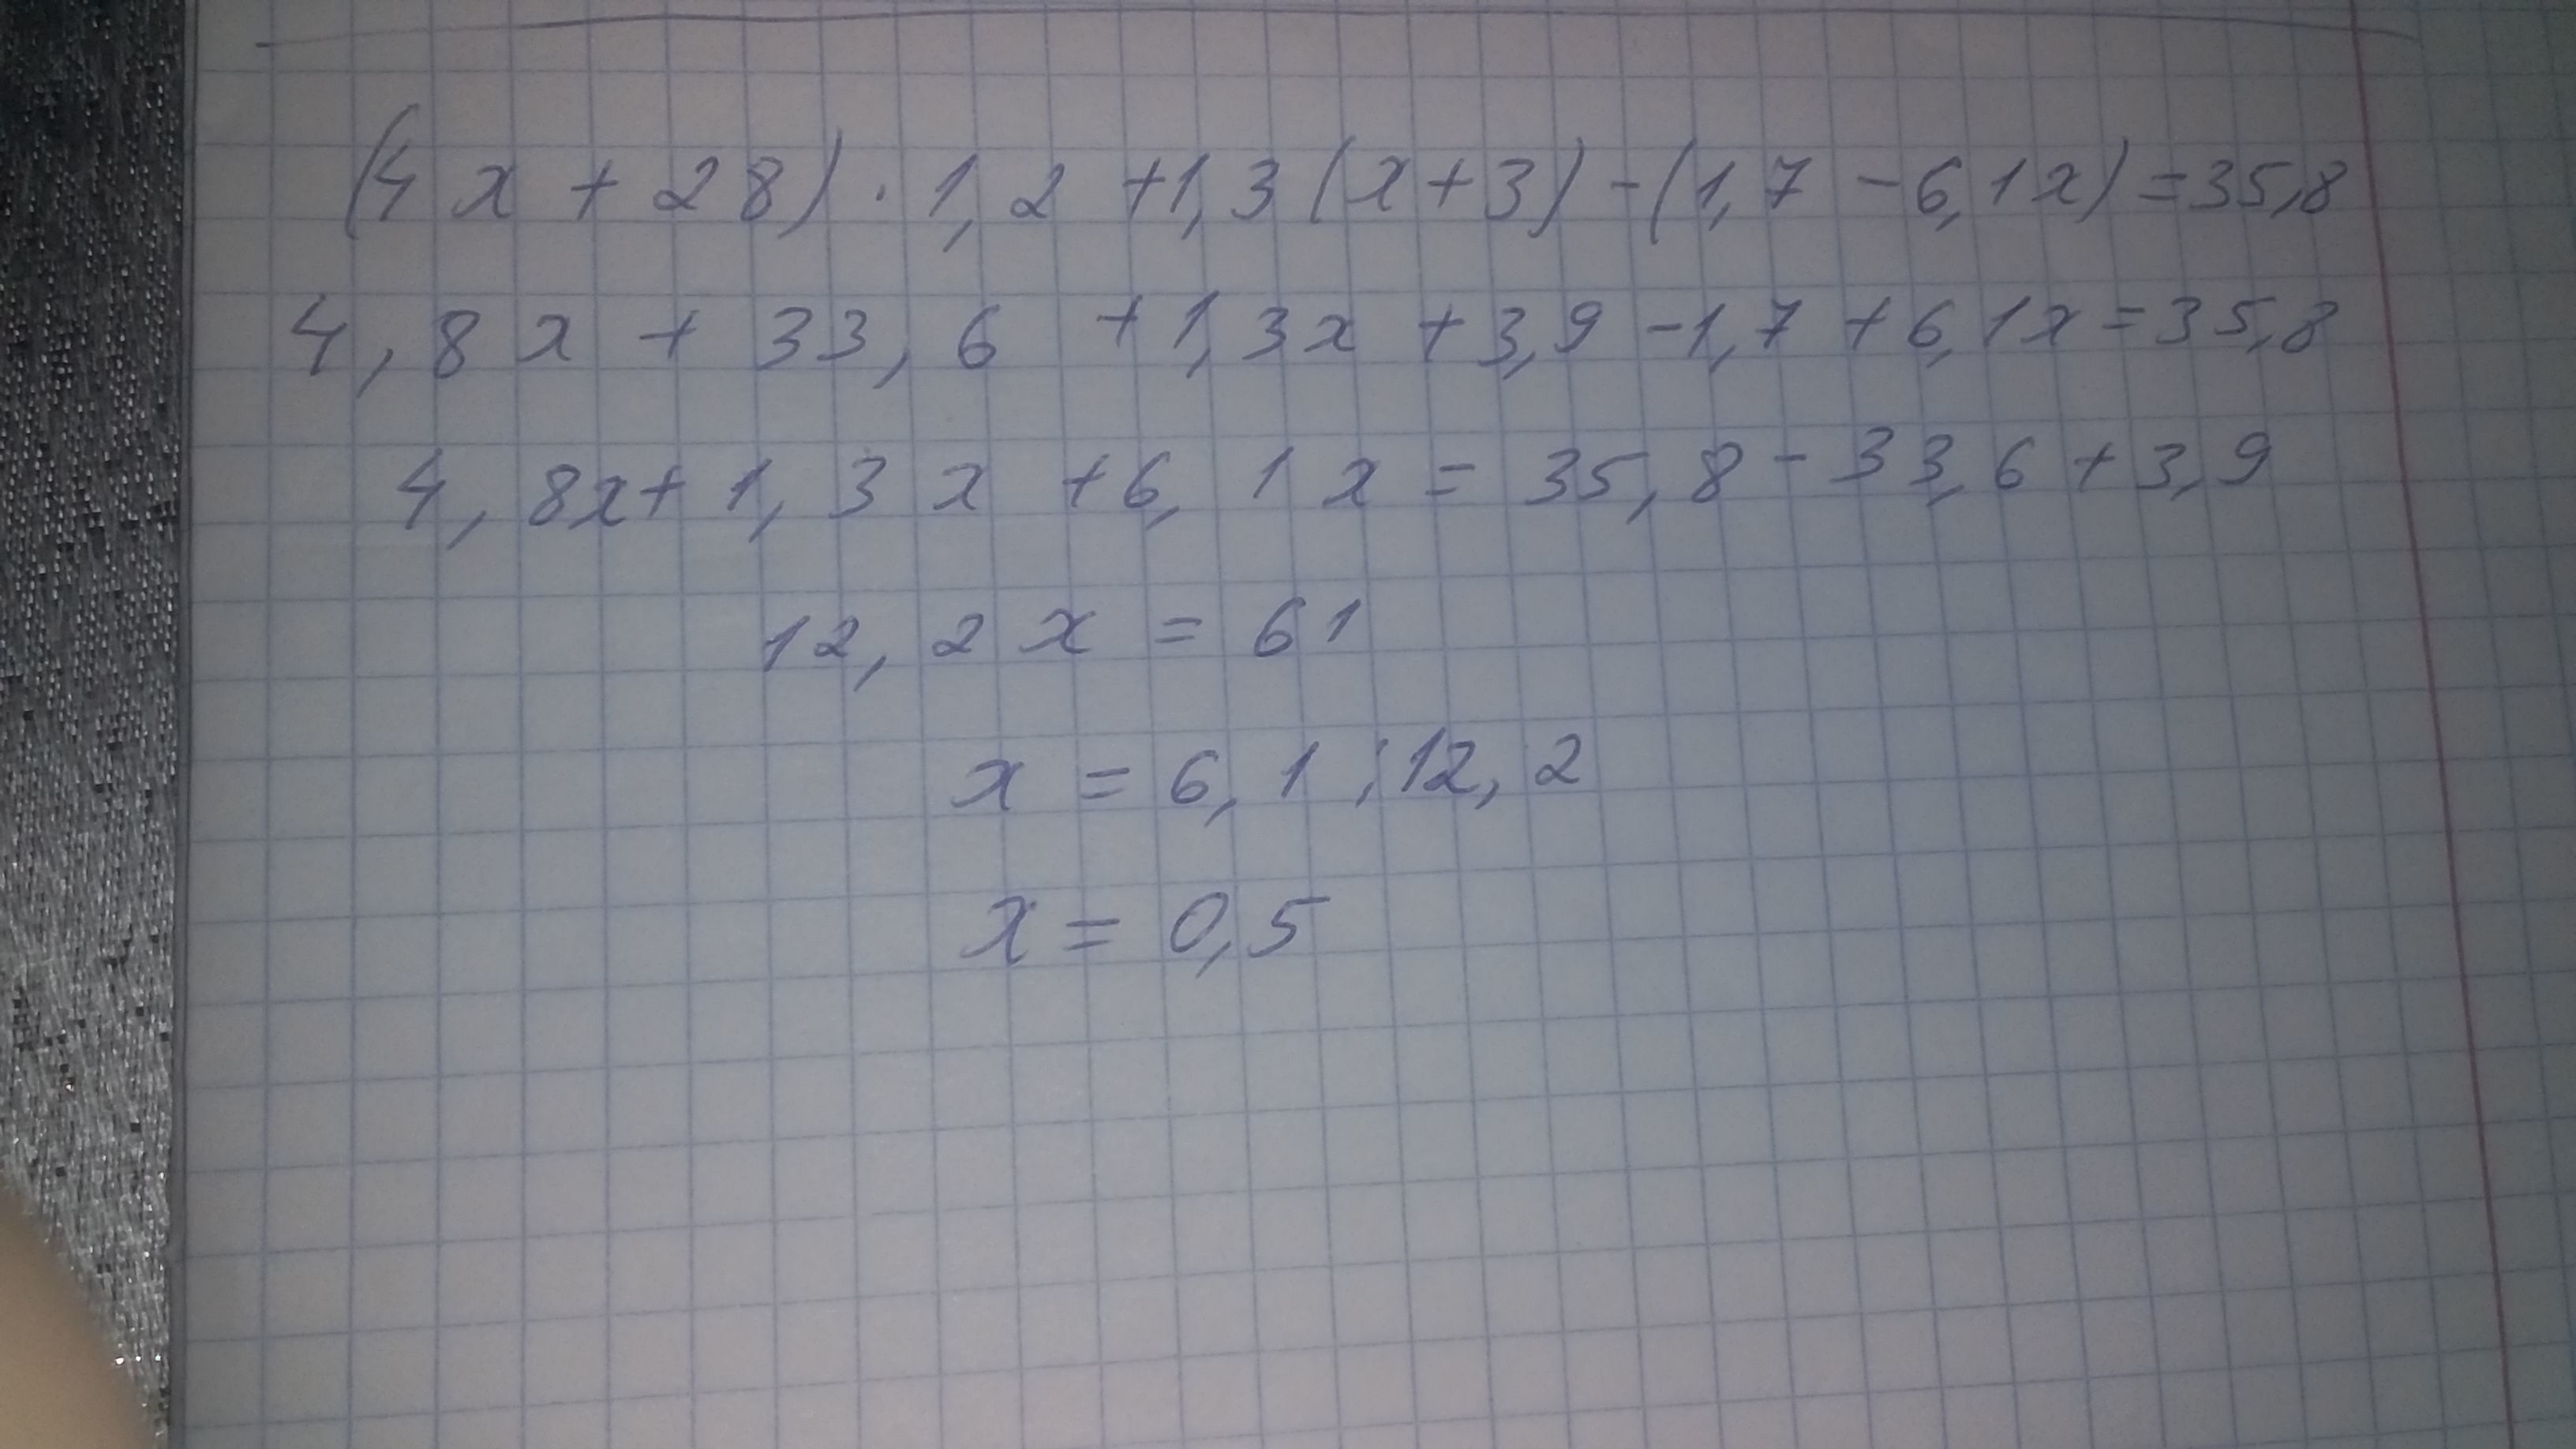 (4x + 28) · 1,2 + 1,3(x+3) - (1,7 - 6,1x) = 35,8
4,8x + 33,6 + 1,3x + 3,9 - 1,7 + 6,1x = 35,8
4,8x + 1,3x + 6,1x = 35,8 - 33,6 + 3,9
12,2x = 61
x = 6,1 : 12,2
x = 0,5